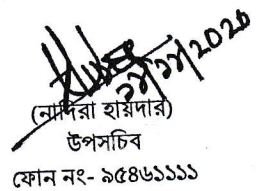 (নাদিরা হায়দার)
উপসচিব
ফোন নং- ৯৫৪৬১১১১